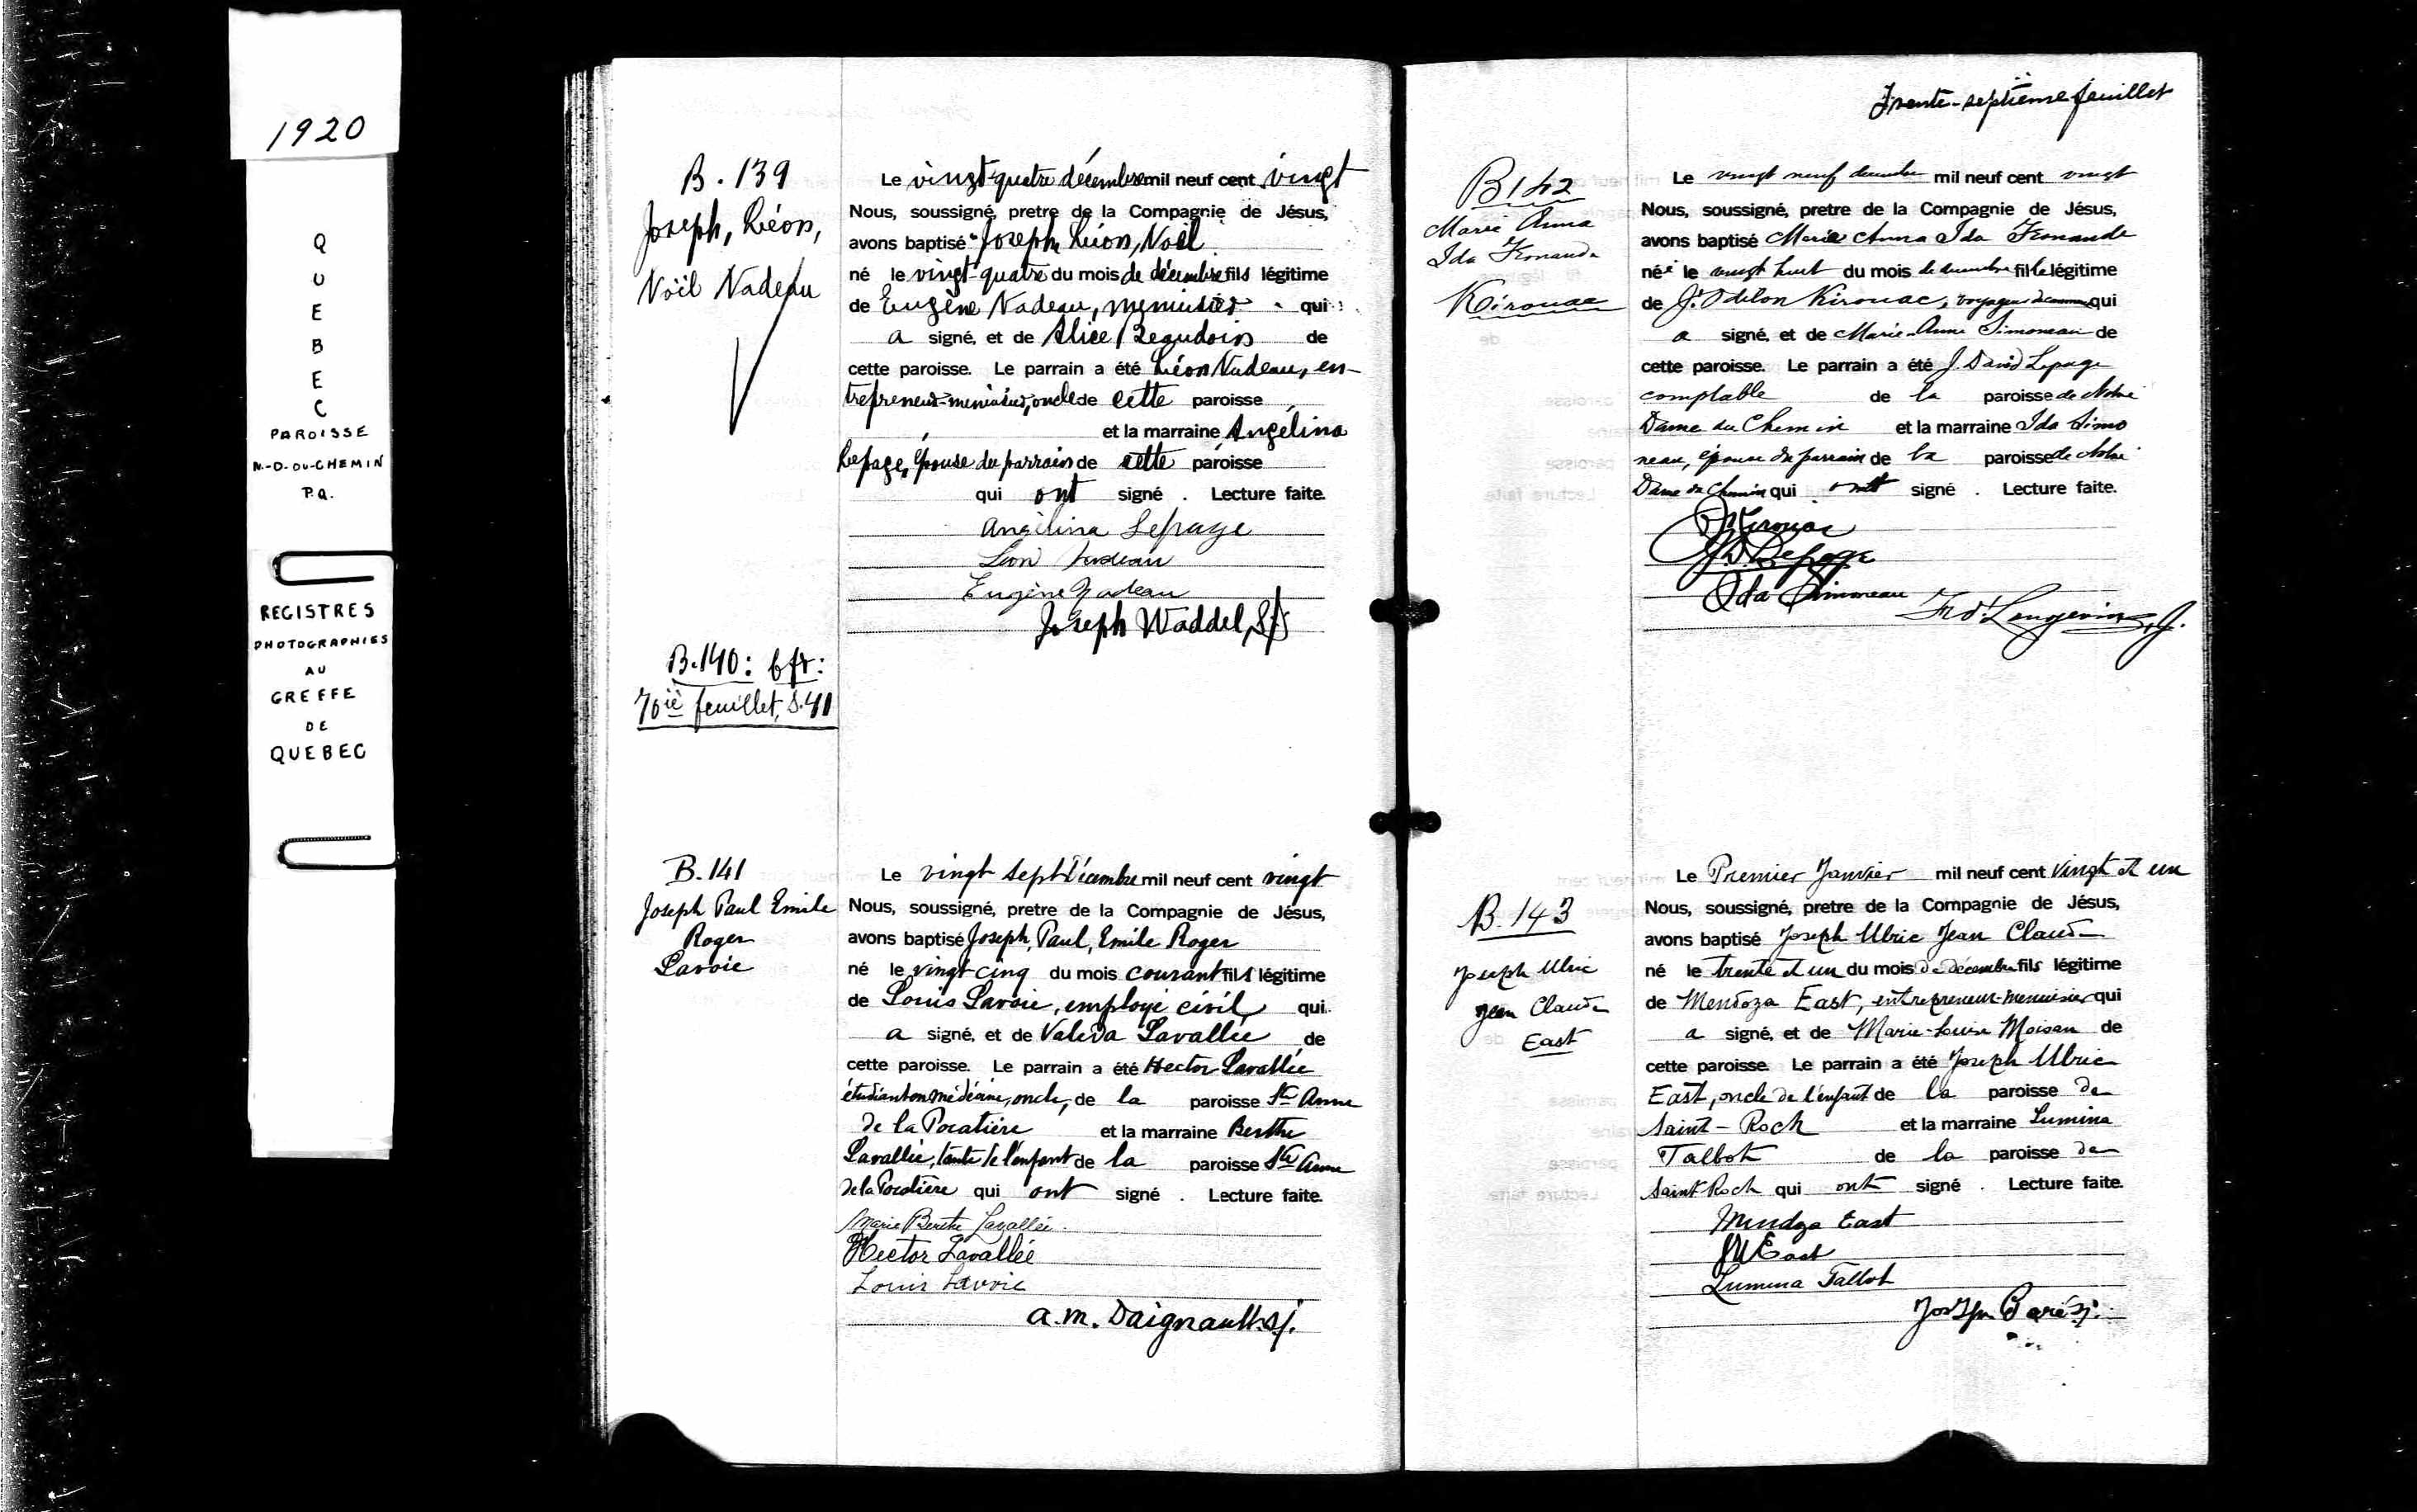 1920
QUEBEC
PAROISSE
N.-D.-DU-CHEMIN
P.Q.
REGISTRES
PHOTOGRAPHIES
AU
GREFFE
DE
QUEBEC
B. 139
Joseph, Léon,
Noël Nadeau
Le vingt-quatre décembre mil neuf cent vingt
Nous, soussigné, pretre de la Compagnie de Jésus,
avons baptisé Joseph, Léon, Noël
né le vingt-quatre du mois de décembre fils légitime
de Eugène Nadeau, menuisier qui
a signé, et de Alice Beaudoin de
cette paroisse. Le parrain a été Léon Nadeau, en-
trepreneur-menuisier, oncle de cette paroisse
et la marraine Angélina
Lepage, épouse du parrain de cette paroisse
qui ont signé . Lecture faite.
Angélina Lepage
Léon Nadeau
Eugène Nadeau
Joseph Waddel, S.J.
B. 140:
70iè feuillet, S. 41
B. 141
Joseph Paul Emile
Roger
Lavoie
Le vingt sept Décembre mil neuf cent vingt
Nous, soussigné, pretre de la Compagnie de Jésus,
avons baptisé Joseph, Paul, Emile Roger
né le vingt-cinq du mois courant fils légitime
de Louis Lavoie, employé civil, qui
a signé, et de Valeda Lavallée de
cette paroisse. Le parrain a été Hector Lavallée
étudiant en médecine, oncle, de la paroisse Ste Anne
de la Pocatière et la marraine Berthe
Lavallée, tante de l'enfant de la paroisse Ste Anne
de la Pocatière qui ont signé . Lecture faite.
Marie Berthe Lavallée.
Hector Lavallée
Louis Lavoie
A. M. Daignault s.j.
Trente-septième feuillet
B 142
Marie Anna
Ida Fernande
Kirouac
Le vingt neuf decembre mil neuf cent vingt
Nous, soussigné, pretre de la Compagnie de Jésus,
avons baptisé Marie Anna Ida Fernande
née le vingt huit du mois de decembre fille légitime
de J. Odilon Kirouac, voyageur de commerce qui
a signé, et de Marie-Anne Simoneau de
cette paroisse. Le parrain a été J. David Lepage
comptable de la paroisse de Notre
Dame du Chemin et la marraine Ida Simo
neau, épouse du parrain de la paroisse de Notre
Dame du Chemin qui ont signé . Lecture faite.
Kirouac
J. D. Lepage
Ida Simoneau
Frd. Langevin, s.j.
B. 143
Joseph Ulric
Jean Claude
East
Le Premier Janvier mil neuf cent vingt et un
Nous, soussigné, pretre de la Compagnie de Jésus,
avons baptisé Joseph Ulric Jean Claude
né le trente et un du mois de décembre fils légitime
de Mendoza East, entrepreneur-menuisier qui
a signé, et de Marie-Louise Moisan de
cette paroisse. Le parrain a été Joseph Ulric
East, oncle de l'enfant de la paroisse de
Saint-Roch et la marraine Lumina
Talbot de la paroisse de
Saint Roch qui ont signé . Lecture faite.
Mendoza East
J U East
Lumina Talbot
Joseph Paré s.j.